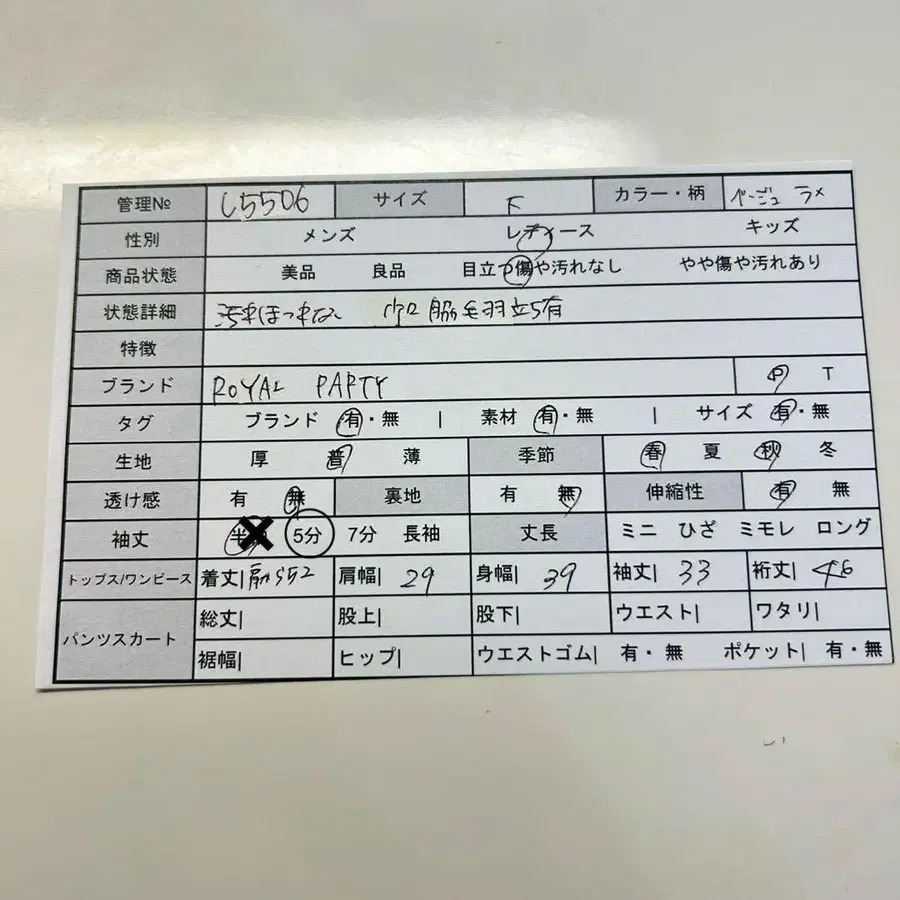 管理№ し5506 サイズ F カラー・柄 ベージュ ラメ
性別 メンズ レディース キッズ
商品状態 美品 良品 目立つ傷や汚れなし やや傷や汚れあり
状態詳細 汚れほつれなし 脇毛羽立ち有
特徴
ブランド ROYAL PARTY P T
タグ ブランド 有・無 | 素材 有・無 | サイズ 有・無
生地 厚 普 薄 季節 春 夏 秋 冬
透け感 有 無 裏地 有 無 伸縮性 有 無
袖丈 半 5分 7分 長袖 丈長 ミニ ひざ ミモレ ロング
トップス/ワンピース 着丈| 52 肩幅| 29 身幅| 39 袖丈| 33 裄丈| 46
パンツスカート 総丈| 股上| 股下| ウエスト| ワタリ|
裾幅| ヒップ| ウエストゴム| 有・無 ポケット| 有・無